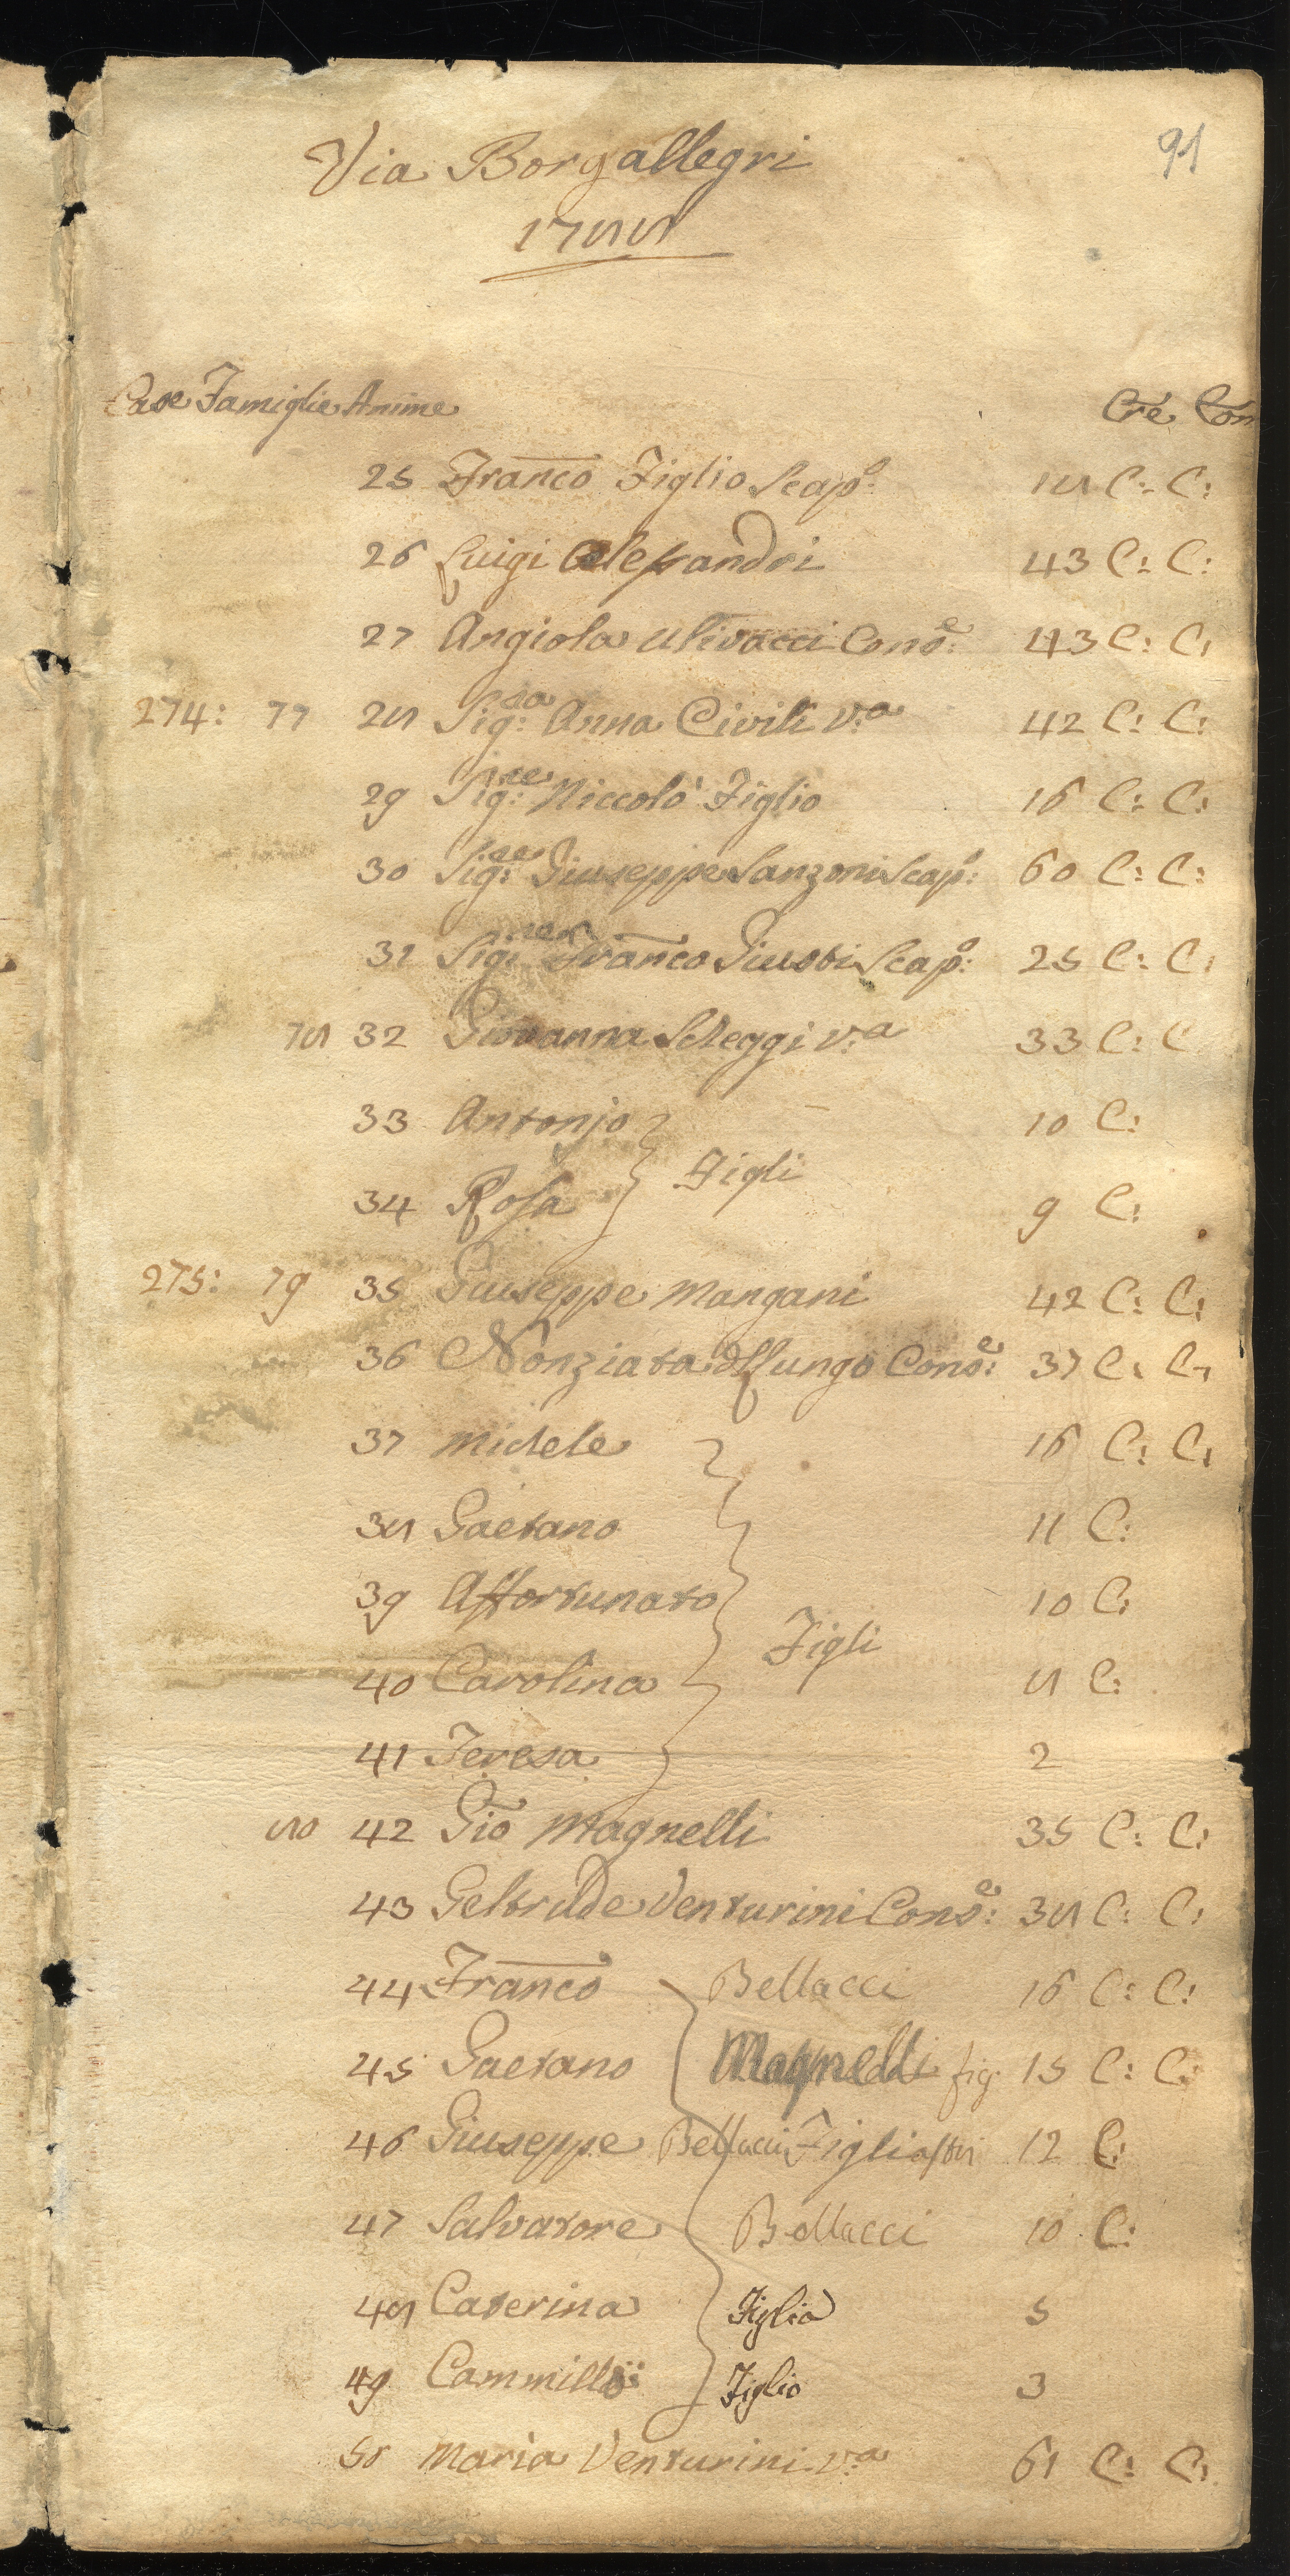 91
Via Borgallegri
1788
Case Famiglie Anime Cre. Con
25 Franco Figlio Scapo: 18 C: C:
26 Luigi Alessandri 43 C: C:
27 Angiola Ulivacci Conse: 43 C: C:
274: 77 28 Sig:ra Anna Civili v:a 42 C: C:
29 Sig:re Niccolò Figlio 16 C: C:
30 Sig:re Giuseppe Sanzoni Scapo: 60 C: C:
31 Sig:re Franco Giusti Scapo: 25 C: C:
78 32 Giovanna Scheggi v:a 33 C: C
33 Antonio 10 C:
Figli
34 Rosa 9 C:
275: 79 35 Giuseppe Mangani 42 C: C:
36 Nonziata del Lungo Conse: 37 C: C:
37 Michele 16 C: C:
38 Gaetano 11 C:
39 Affortunato 10 C:
Figli
40 Carolina 8 C:
41 Teresa 2
80 42 Gio Magnelli 35 C: C:
43 Geltrude Venturini Conse: 38 C: C:
44 Franco Bellacci 16 C: C:
45 Gaetano Magnelli fig. 15 C: C:
46 Giuseppe Bellacci Figliastri 12 C:
47 Salvatore Bellacci 10 C:
48 Caterina Figlia 5
49 Cammillo Figlio 3
50 Maria Venturini v:a 61 C: C: